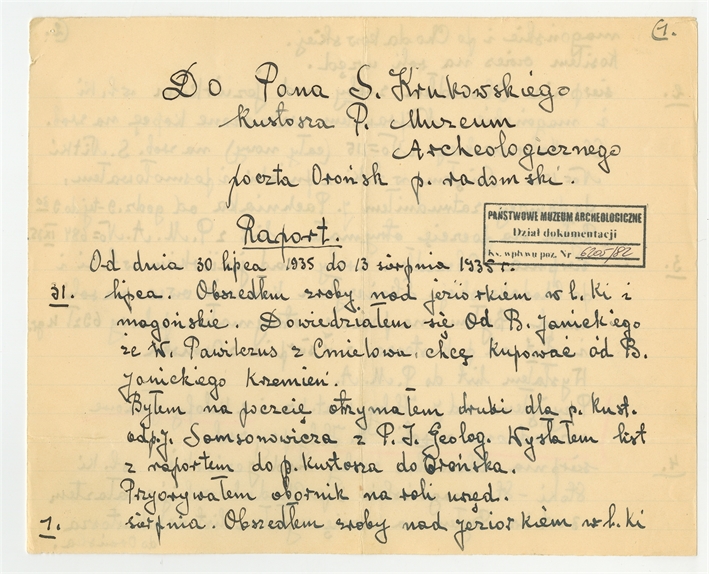 1.
Do Pana S. Krukowskiego
Kustosza P. Muzeum
Archeologicznego
poczta Orońsk p. radomski.
PAŃSTWOWE MUZEUM ARCHEOLOGICZNE
Dział dokumentacji
Ks. wpływu poz. Nr 6205/82
Raport.
Od dnia 30 lipca 1935 do 13 sierpnia 1935 r.
31. lipca. Obszedłem zroby nad jeziorkiem w ł. Ki i
magońskie. Dowiedziałem się Od B. Janickiego
że W. Pawilczus z Cmielowa, chcę kupować od B.
Janickiego Krzemień.
Byłem na poczcię otrzymałem druki dla p. kust.
odp. J. Samsonowicza z P. I. Geolog. Wysłałem list
z raportem do p. kustosza do Orońska.
Przyorywałem obornik na roli urzęd.
1. sierpnia. Obszedłem zroby nad jeziorkiem w ł. Ki